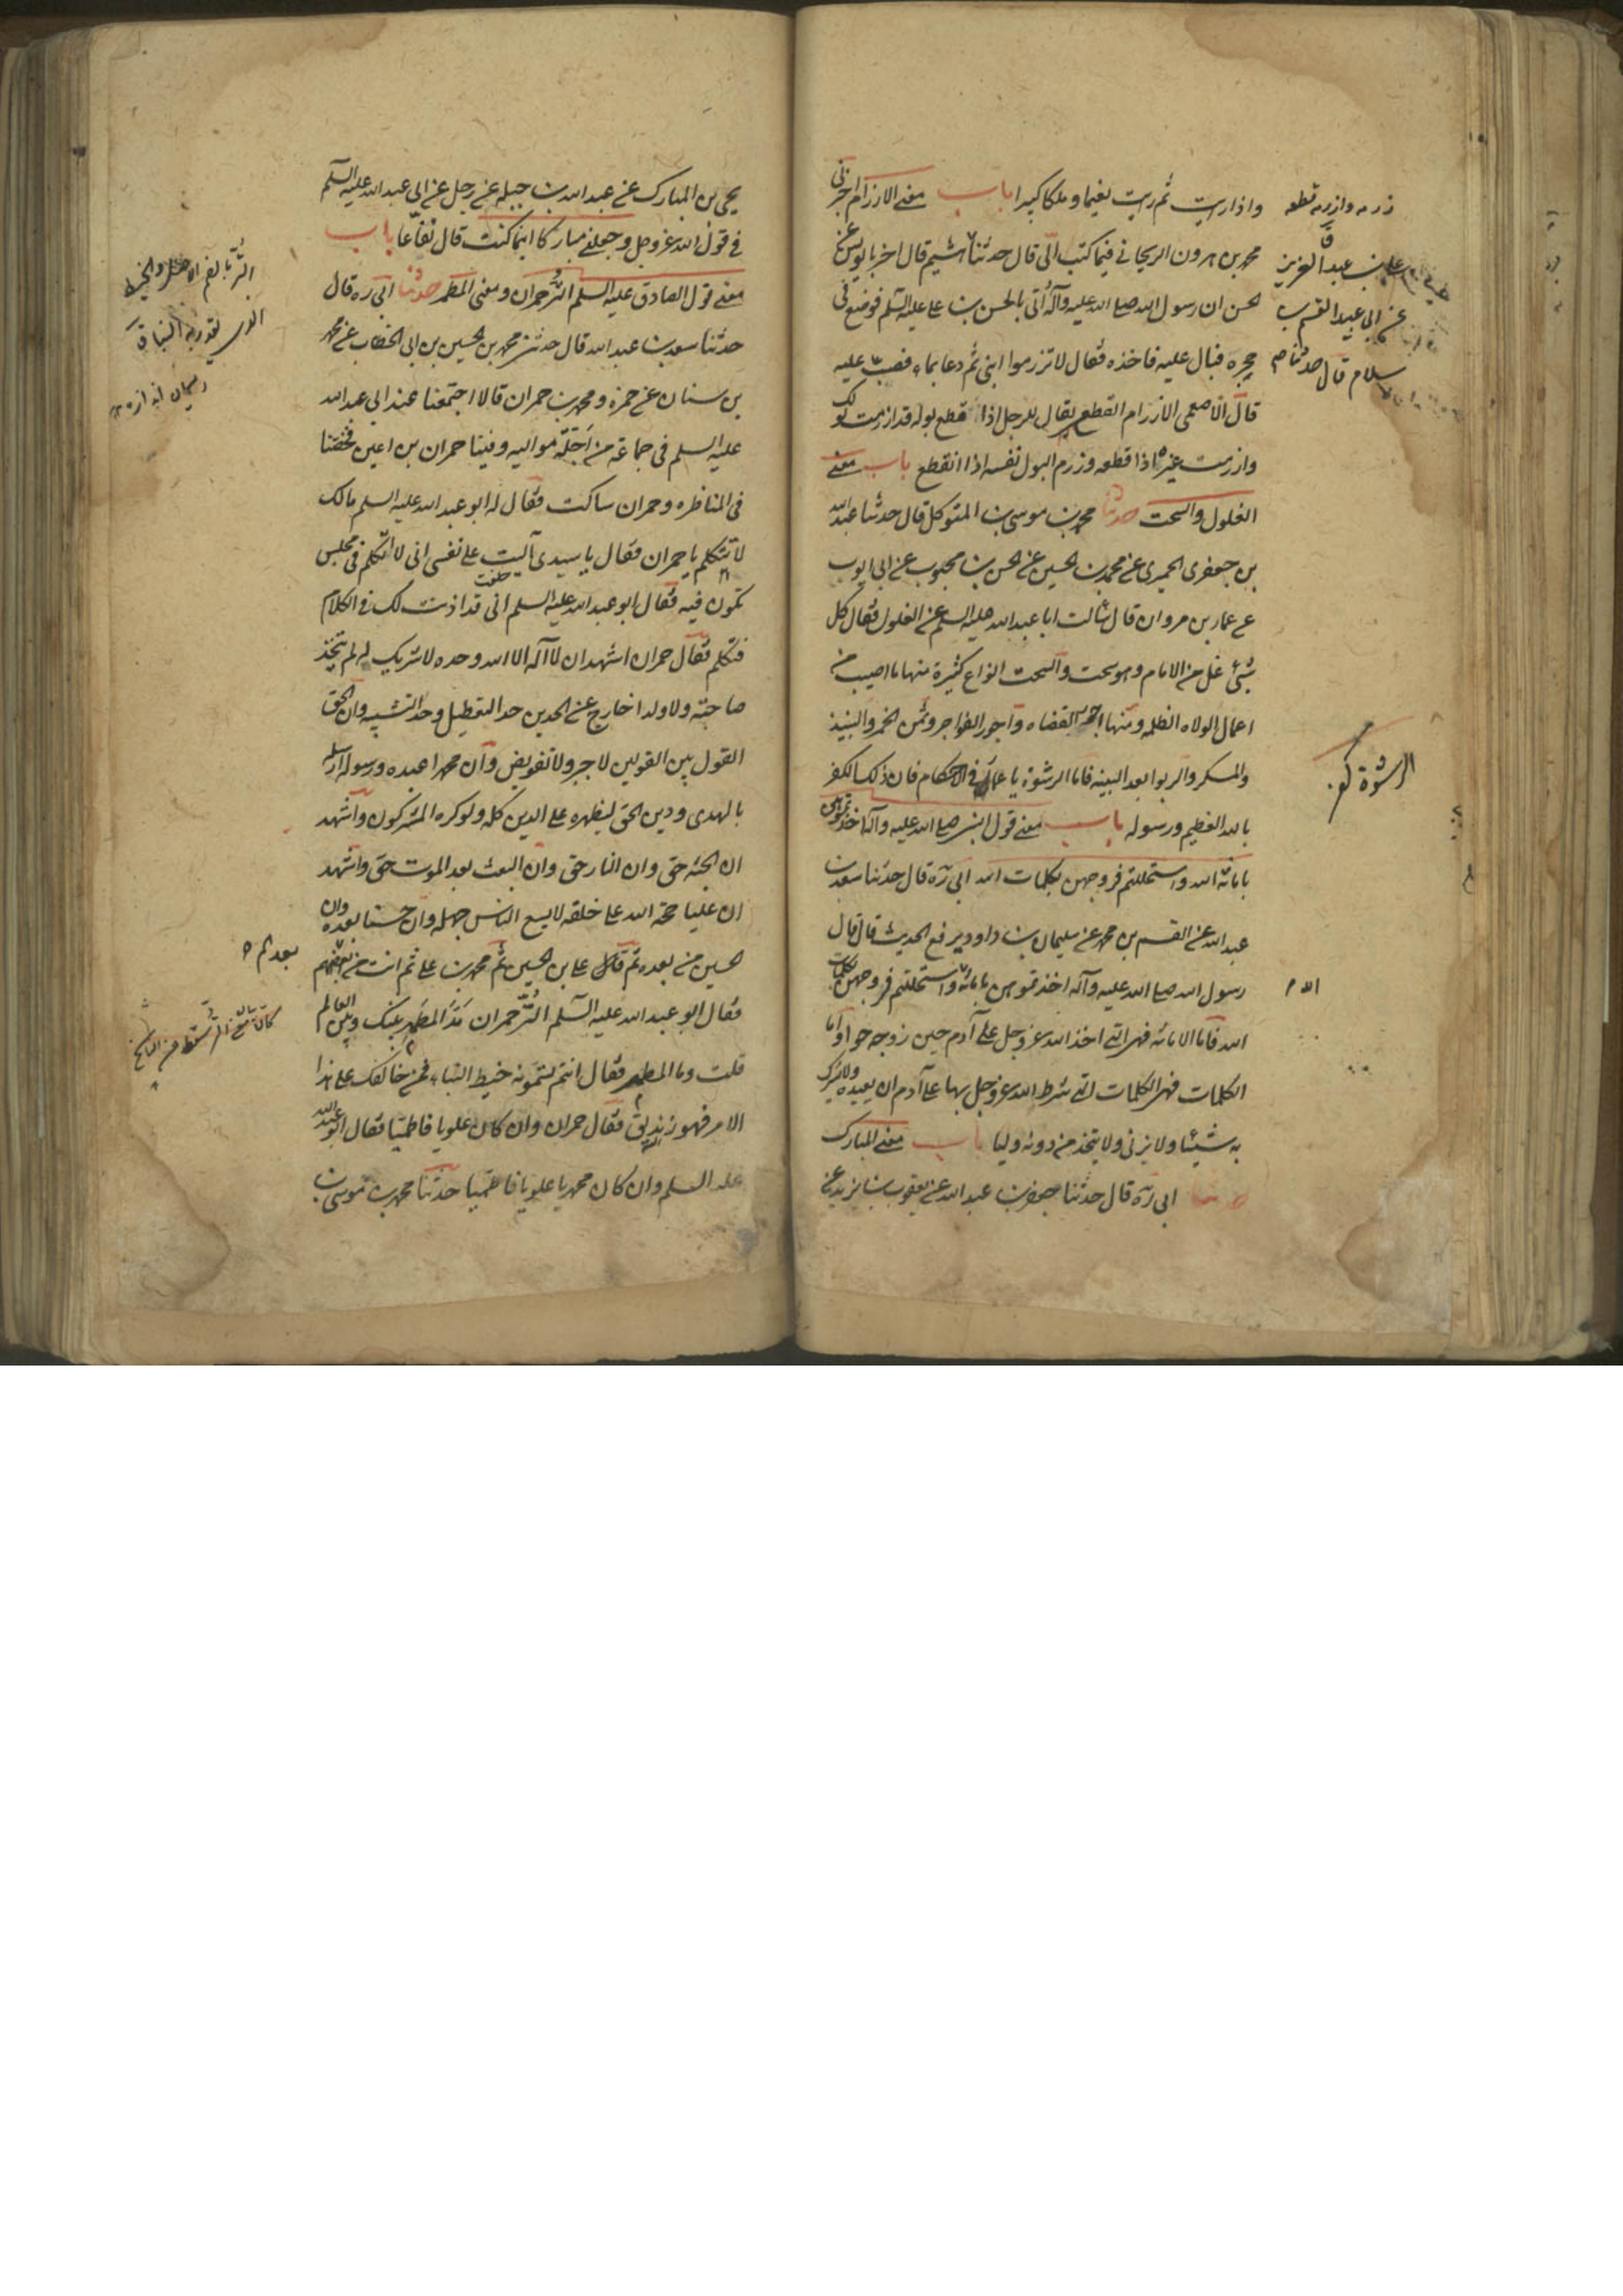 واذا رايت ثم رايت نعيما وملكا كبيرا باب معنى الازرام اخبرنى
محمد بن هرون الزنجانى فيما كتب الى قال حدثنا هشيم قال اخبرنا يونس عن
الحسن ان رسول الله صلى الله عليه وآله أتى بالحسن بن على عليه السلم فوضع فى
حجره فبال عليه فاخذه فقال لا تزرموا ابنى ثم دعا بماء فصب عليه
قال الاصمعى الازرام القطع يقال للرجل اذا قطع بوله قد ازرمت بولك
وازرمت غيره اذا قطعه وزرم البول نفسه اذا انقطع باب معنى
الغلول والسحت حدثنا محمد بن موسى بن المتوكل قال حدثنا عبد الله
بن جعفر الحميرى عن محمد بن الحسين عن الحسن بن محبوب عن ابى ايوب
عن عمار بن مروان قال سالت ابا عبد الله عليه السلم عن الغلول فقال كل
شىء غل من الامام وهو سحت والسحت انواع كثيرة منها ما اصيب من
اعمال الولاه الظلمه ومنها اجور القضاه واجور الفواجر وثمن الخمر والنبيذ
والمسكر والربوا بعد البينه فاما الرشوة يا عمار فى الاحكام فان ذلك الكفر
بالله العظيم ورسوله باب معنى قول النبى صلى الله عليه وآله اخذتموهن
بامانة الله واستحللتم فروجهن بكلمات الله ابى ره قال حدثنا سعد بن
عبد الله عن القسم بن محمد عن سليمان بن داود يرفع الحديث قال قال
رسول الله صلى الله عليه وآله اخذتموهن بامانة واستحللتم فروجهن بكلمات
الله فاما الامانه فهى التى اخذ الله عز وجل على آدم حين زوجه حوا واما
الكلمات فهى الكلمات التى شرط الله عز وجل بها على آدم ان يعبده ولا يشرك
به شيئا ولا يزنى ولا يتخذ من دونه وليا باب معنى المبارك
حدثنا ابى ره قال حدثنا جعفر بن عبد الله عن يعقوب بن يزيد عن
زرمه وازرمه قطعه
على بن عبد العزيز
عن ابى عبيد القسم بن
سلام قال حدثنا
الرشوة كفر
الله م
يحيى بن المبارك عن عبد الله بن جبله عن رجل عن ابى عبد الله عليه السلم
فى قول الله عز وجل وجعلنى مباركا اينما كنت قال نفاعا باب
معنى قول الصادق عليه السلم التر حمران ومعنى المطمر حدثنا ابى ره قال
حدثنا سعد بن عبد الله قال حدثنى محمد بن الحسين بن ابى الخطاب عن محمد
بن سنان عن حمزه ومحمد بن حمران قالا اجتمعنا عند ابى عبد الله
عليه السلم فى جماعة من اجلة مواليه وفينا حمران بن اعين فخضنا
فى المناظره وحمران ساكت فقال له ابو عبد الله عليه السلم مالك
لا تتكلم يا حمران فقال يا سيدى آليت على نفسى انى لا اتكلم فى مجلس
حلفت
تكون فيه فقال ابو عبد الله عليه السلم انى قد اذنت لك فى الكلام
فتكلم فقال حمران اشهد ان لا اله الا الله وحده لا شريك له لم يتخذ
صاحبة ولا ولدا خارج عن الحدين حد التعطيل وحد التشبيه وان الحق
القول بين القولين لا جبر ولا تفويض وان محمدا عبده ورسوله ارسله
بالهدى ودين الحق ليظهره على الدين كله ولو كره المشركون واشهد
ان الجنه حق وان النار حق وان البعث بعد الموت حق واشهد
ان عليا حجة الله على خلقه لا يسع الناس جهله وان حسنا بعده وان
الحسين من بعده ثم على بن الحسين ثم محمد بن على ثم انت من بعدهم
فقال ابو عبد الله عليه السلم التر حمران مد المطمر بينك وبين العالم
قلت وما المطمر فقال انتم تسمونه خيط البناء فمن خالفك على هذا
الامر فهو زنديق فقال حمران وان كان علويا فاطميا فقال ابو عبد الله
عليه السلم وان كان محمديا علويا فاطميا حدثنا محمد بن موسى بن
التر بالضم الاصل والخيط
الذى يقدر به البناء ق
بعد ثم